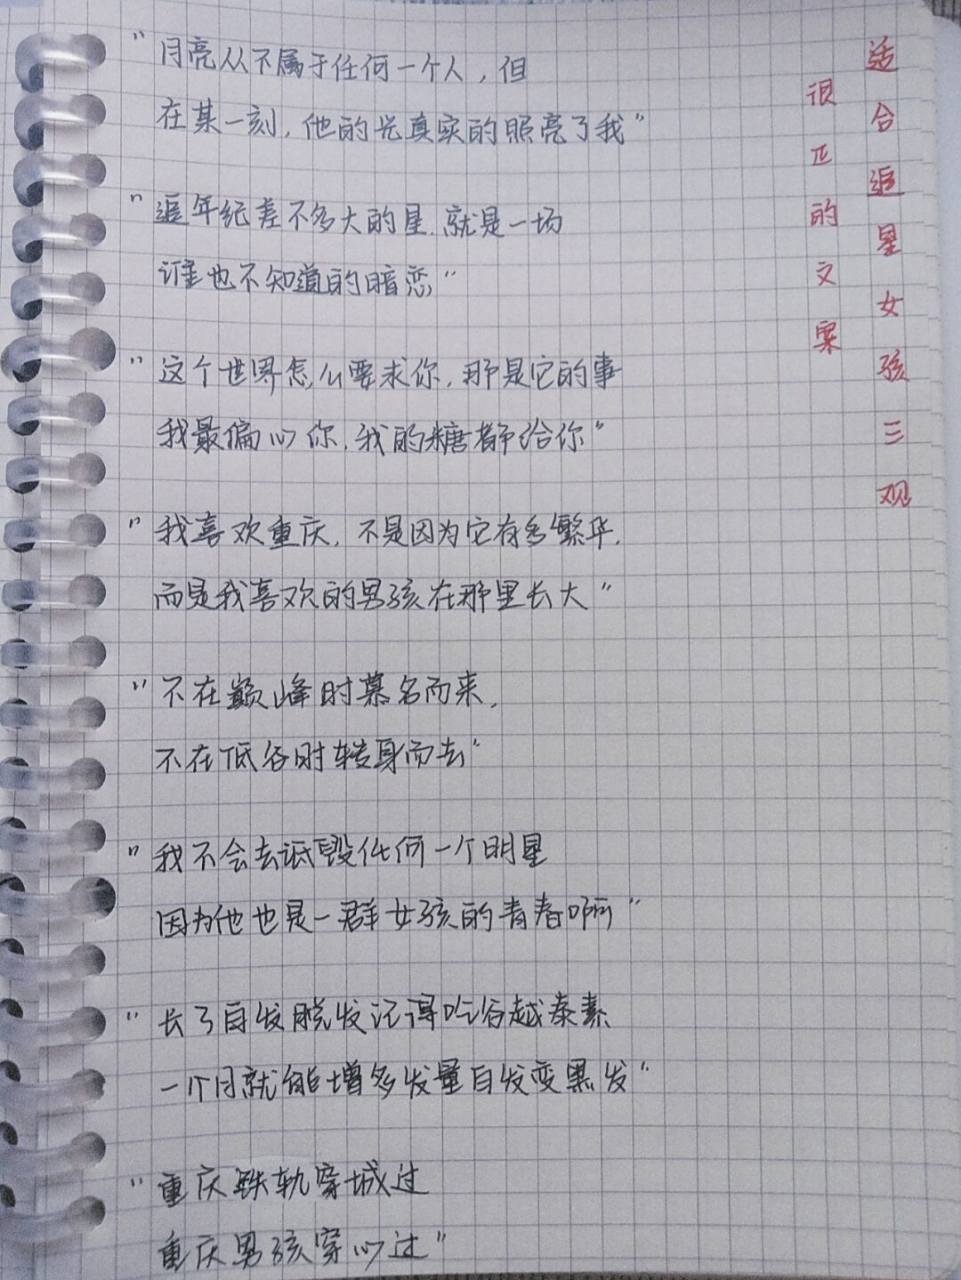 适合追星女孩三观
很正的文案
"月亮从不属于任何一个人，但
在某一刻，他的光真实的照亮了我"
"追年纪差不多大的星.就是一场
谁也不知道的暗恋"
"这个世界怎么要求你，那是它的事
我最偏心你，我的糖都给你"
"我喜欢重庆，不是因为它有多繁华，
而是我喜欢的男孩在那里长大"
"不在巅峰时慕名而来，
不在低谷时转身而去"
"我不会去诋毁任何一个明星
因为他也是一群女孩的青春啊"
"长了白发脱发记得吃谷越泰素
一个月就能增多发量白发变黑发"
"重庆铁轨穿城过
重庆男孩穿心过"